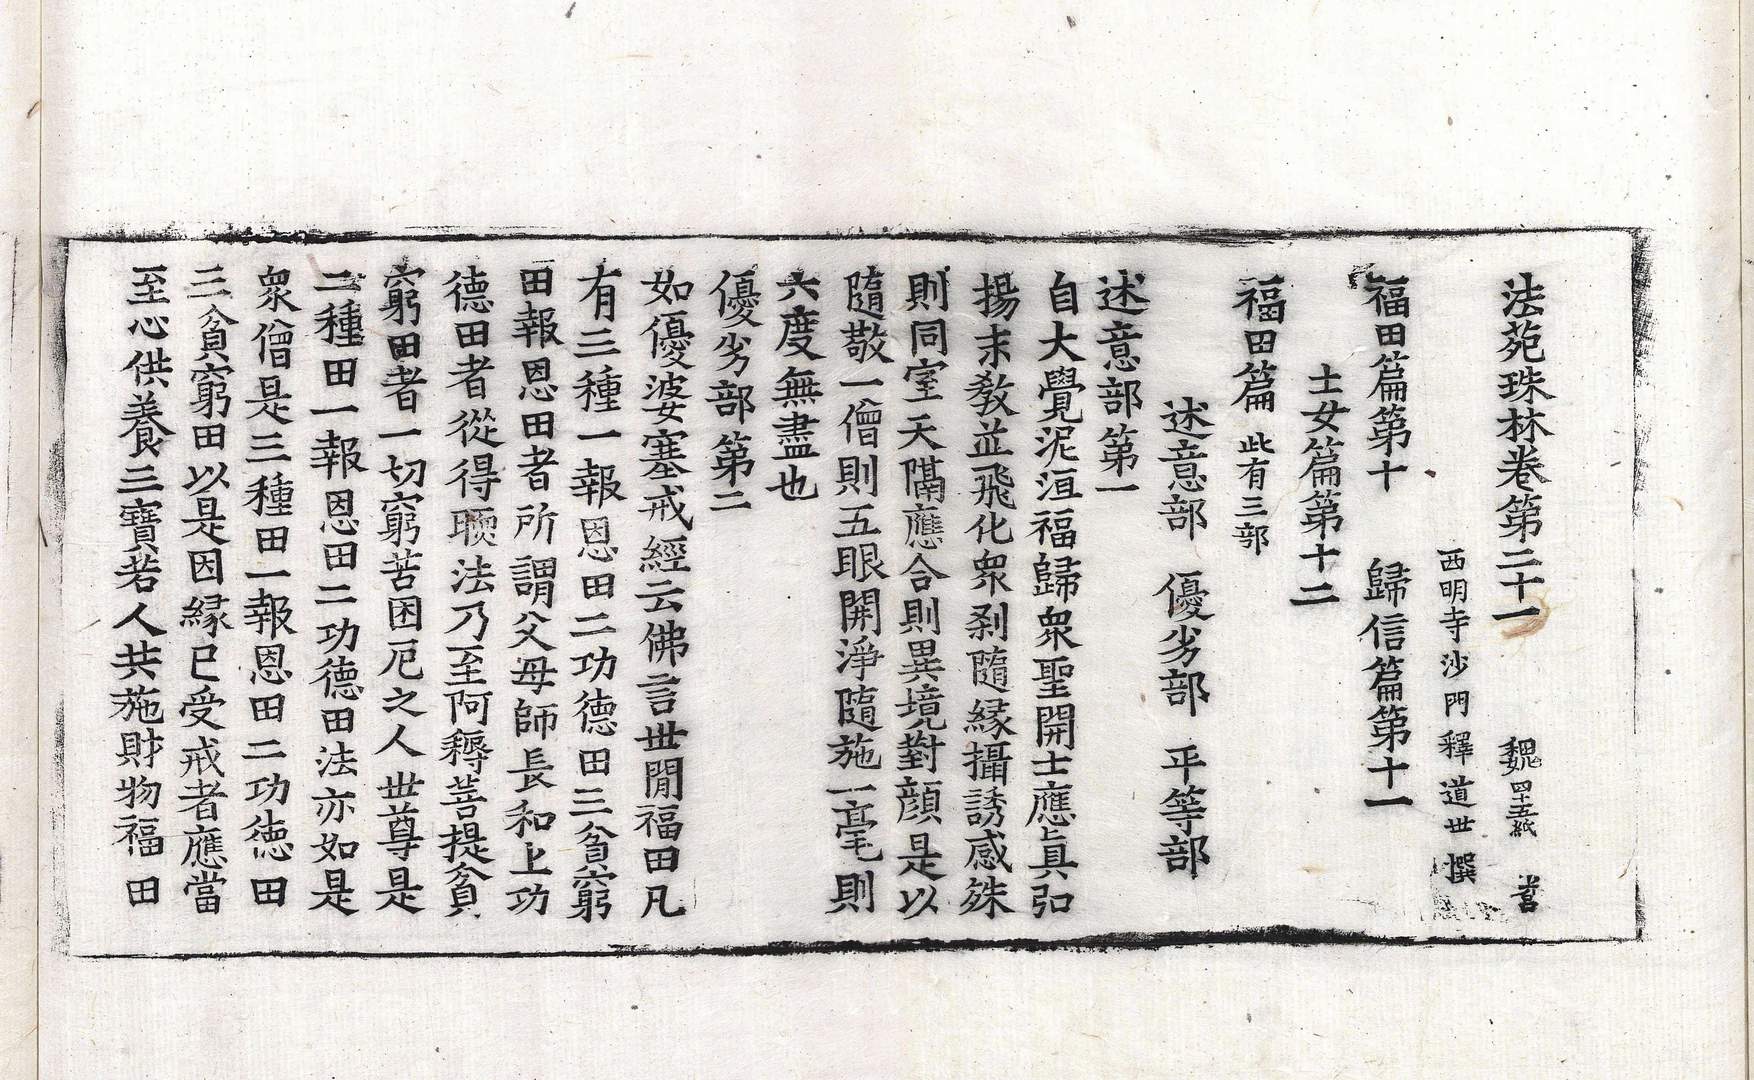 法苑珠林卷第二十一 魏 四十五紙
西明寺沙門釋道世撰
福田篇第十 歸信篇第十一
士女篇第十二
福田篇 此有三部
述意部 優劣部 平等部
述意部第一
自大覺泥洹福歸衆聖開士應真弘
揚末教並飛化衆刹隨緣攝誘感殊
則同室天隔應合則異境對顔是以
隨敬一僧則五眼開淨隨施一毫則
六度無盡也
優劣部第二
如優婆塞戒經云佛言世間福田凡
有三種一報恩田二功德田三貧窮
田報恩田者所謂父母師長和上功
德田者從得煗法乃至阿耨菩提貧
窮田者一切窮苦困厄之人世尊是
二種田一報恩田二功德田法亦如是
衆僧是三種田一報恩田二功德田
三貧窮田以是因緣已受戒者應當
至心供養三寶若人共施財物福田